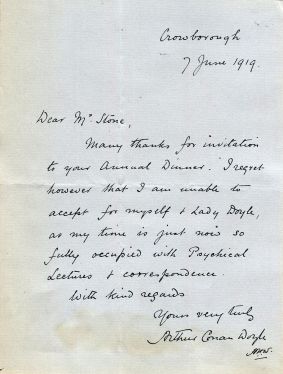 Crowborough
7 June 1919.
Dear Mr Stone,
Many thanks for invitation
to your Annual Dinner. I regret
however that I am unable to
accept for myself & Lady Doyle,
as my time is just now so
fully occupied with Psychical
Lectures & correspondence.
With kind regards
Yours very truly
Arthur Conan Doyle